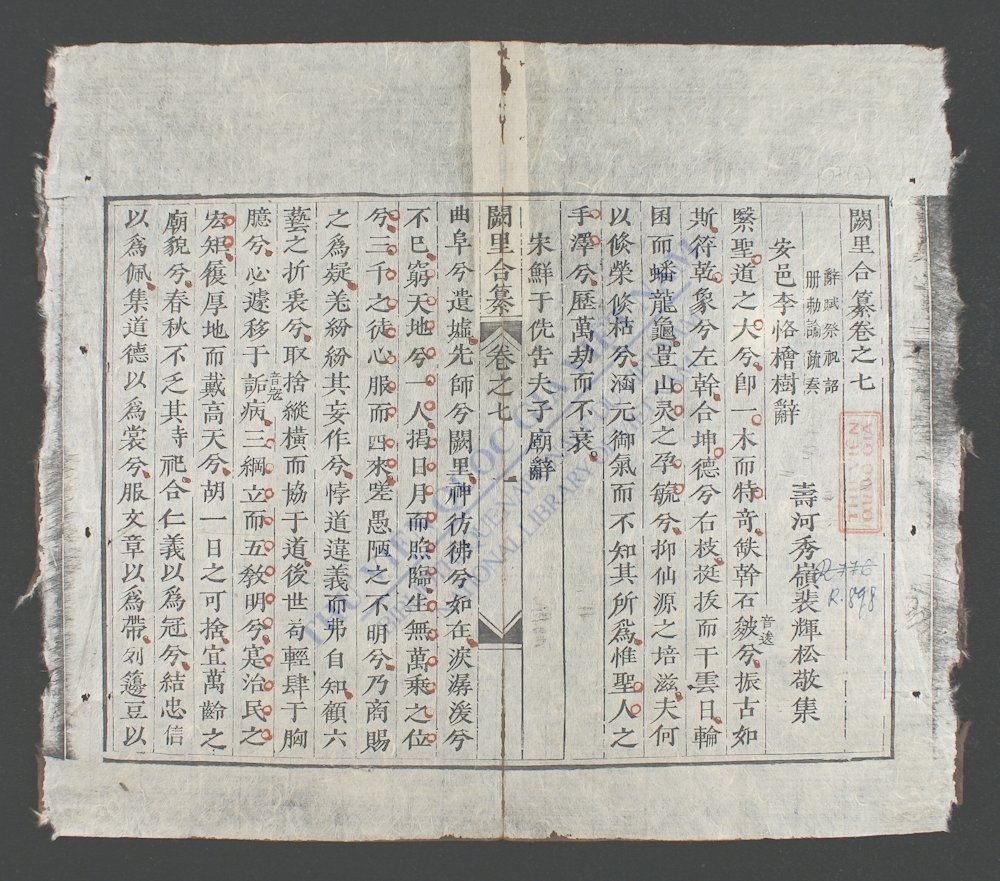 闕里合纂卷之七
辭賦祭祝詔
册勅諭疏奏
壽河秀嶺裴輝松敬集
安邑李恪檜樹辭
繄聖道之大兮卽一木而特奇鉄幹石皴音逡兮振古如
斯符乾象兮左幹合坤德兮右枝挺拔而干雲日輪
囷而蟠龍龜豈山灵之孕毓兮抑仙源之培滋夫何
以倏榮倏枯兮涵元御氣而不知其所爲惟聖人之
手澤兮歷萬劫而不衰
宋鮮于侁告夫子廟辭
闕里合纂 卷之七 一
曲阜兮遺墟先師兮闕里神彷彿兮如在淚潺湲兮
不已窮天地兮一人揭日月而照臨生無萬乘之位
兮三千之徒心服而四來嗟愚陋之不明兮乃商賜
之爲疑羌紛紛其妄作兮悖道違義而弗自知顧六
藝之折衷兮取捨縱橫而協于道後世苟輕肆于胸
臆兮心遽移于詬音寇病三綱立而五教明兮寔治民之
宏矩履厚地而戴高天兮胡一日之可捨宜萬齡之
廟貌兮春秋不乏其寺祀合仁義以爲冠兮結忠信
以爲佩集道德以爲裳兮服文章以爲帶列籩豆以
R.898
THƯ VIỆN QUỐC GIA
NATIONAL LIBRARY OF